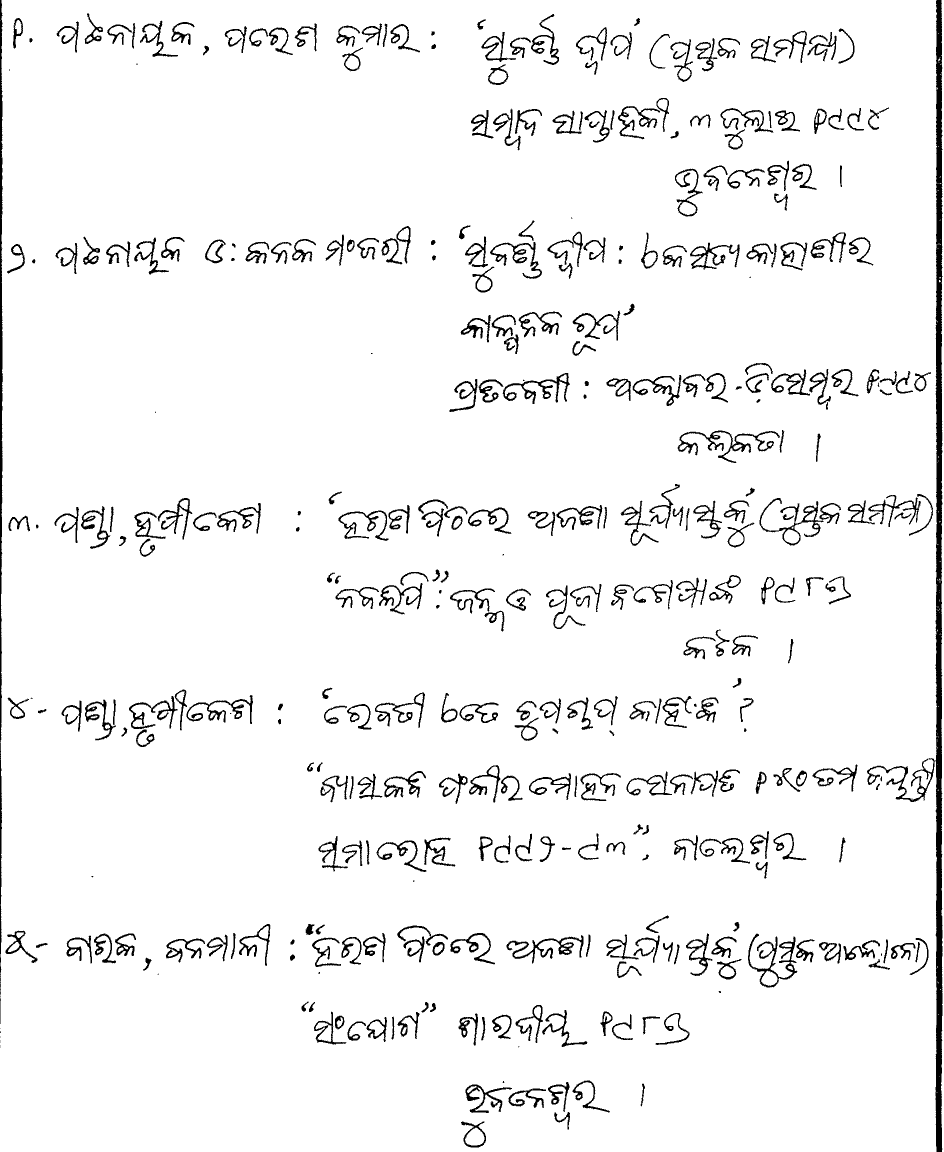 ୧. ପଟ୍ଟନାୟକ, ପରେଶ କୁମାର : 'ସୁବର୍ଣ୍ଣ ଦ୍ୱୀପ' (ପୁସ୍ତକ ସମୀକ୍ଷା)
ସମ୍ବାଦ ସାପ୍ତାହିକୀ, ୩ ଜୁଲାଇ ୧୯୯୪
ଭୁବନେଶ୍ୱର ।
୨. ପଟ୍ଟନାୟକ ଓ: କନକ ମଂଜରୀ : 'ସୁବର୍ଣ୍ଣ ଦ୍ୱୀପ : ଏକ ସତ୍ୟ କାହାଣୀର
କାଳ୍ପନିକ ରୂପ'
ପ୍ରତିବେଶୀ : ଅକ୍ଟୋବର - ଡିସେମ୍ବର ୧୯୯୪
କଲିକତା ।
୩. ପଣ୍ଡା, ହୃଷୀକେଶ : 'ହରିଣ ପିଠିରେ ଅଜଣା ସୂର୍ଯ୍ୟାସ୍ତକୁ' (ପୁସ୍ତକ ସମୀକ୍ଷା)
"ନବଲିପି" : ଜନ୍ମ ଓ ପୂଜା ବିଶେଷାଙ୍କ ୧୯୮୭
କଟକ ।
୪- ପଣ୍ଡା, ହୃଷୀକେଶ : 'ରେବତୀ ଏତେ ଚୁପ୍‌ଚାପ୍ କାହିଁକି' ?
"ବ୍ୟାସକବି ଫକୀର ମୋହନ ସେନାପତି ୧୫୦ ତମ ଜୟନ୍ତୀ
ସମାରୋହ ୧୯୯୨-୯୩", ବାଲେଶ୍ୱର ।
୫- ବାରିକ, ବନମାଳୀ : "ହରିଣ ପିଠିରେ ଅଜଣା ସୂର୍ଯ୍ୟାସ୍ତକୁ (ପୁସ୍ତକ ଆଲୋଚନା)
"ସଂଯୋଗ" ଶାରଦୀୟ ୧୯୮୭
ଭୁବନେଶ୍ୱର ।